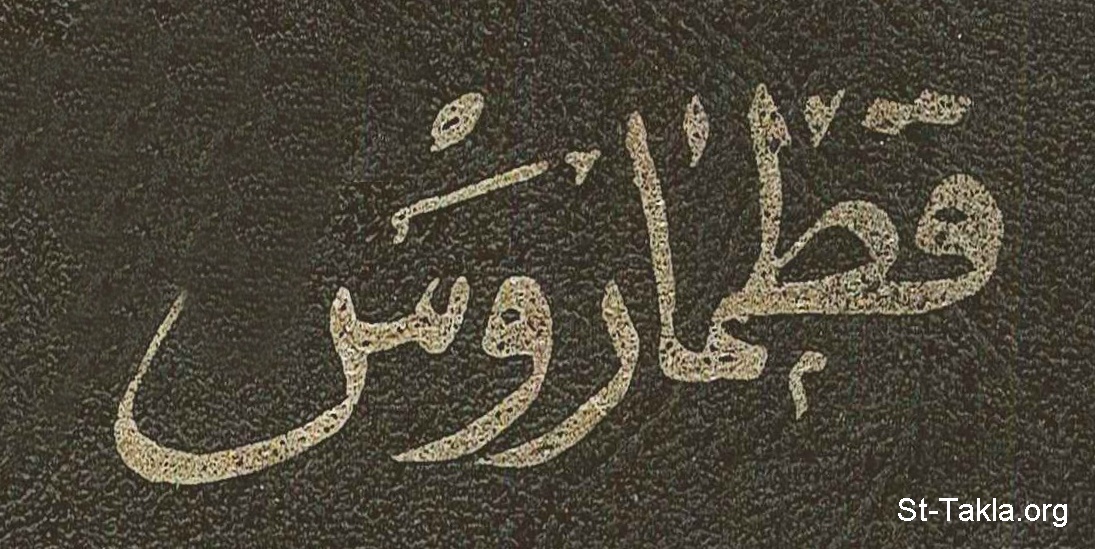 قطمارس
St-Takla.org